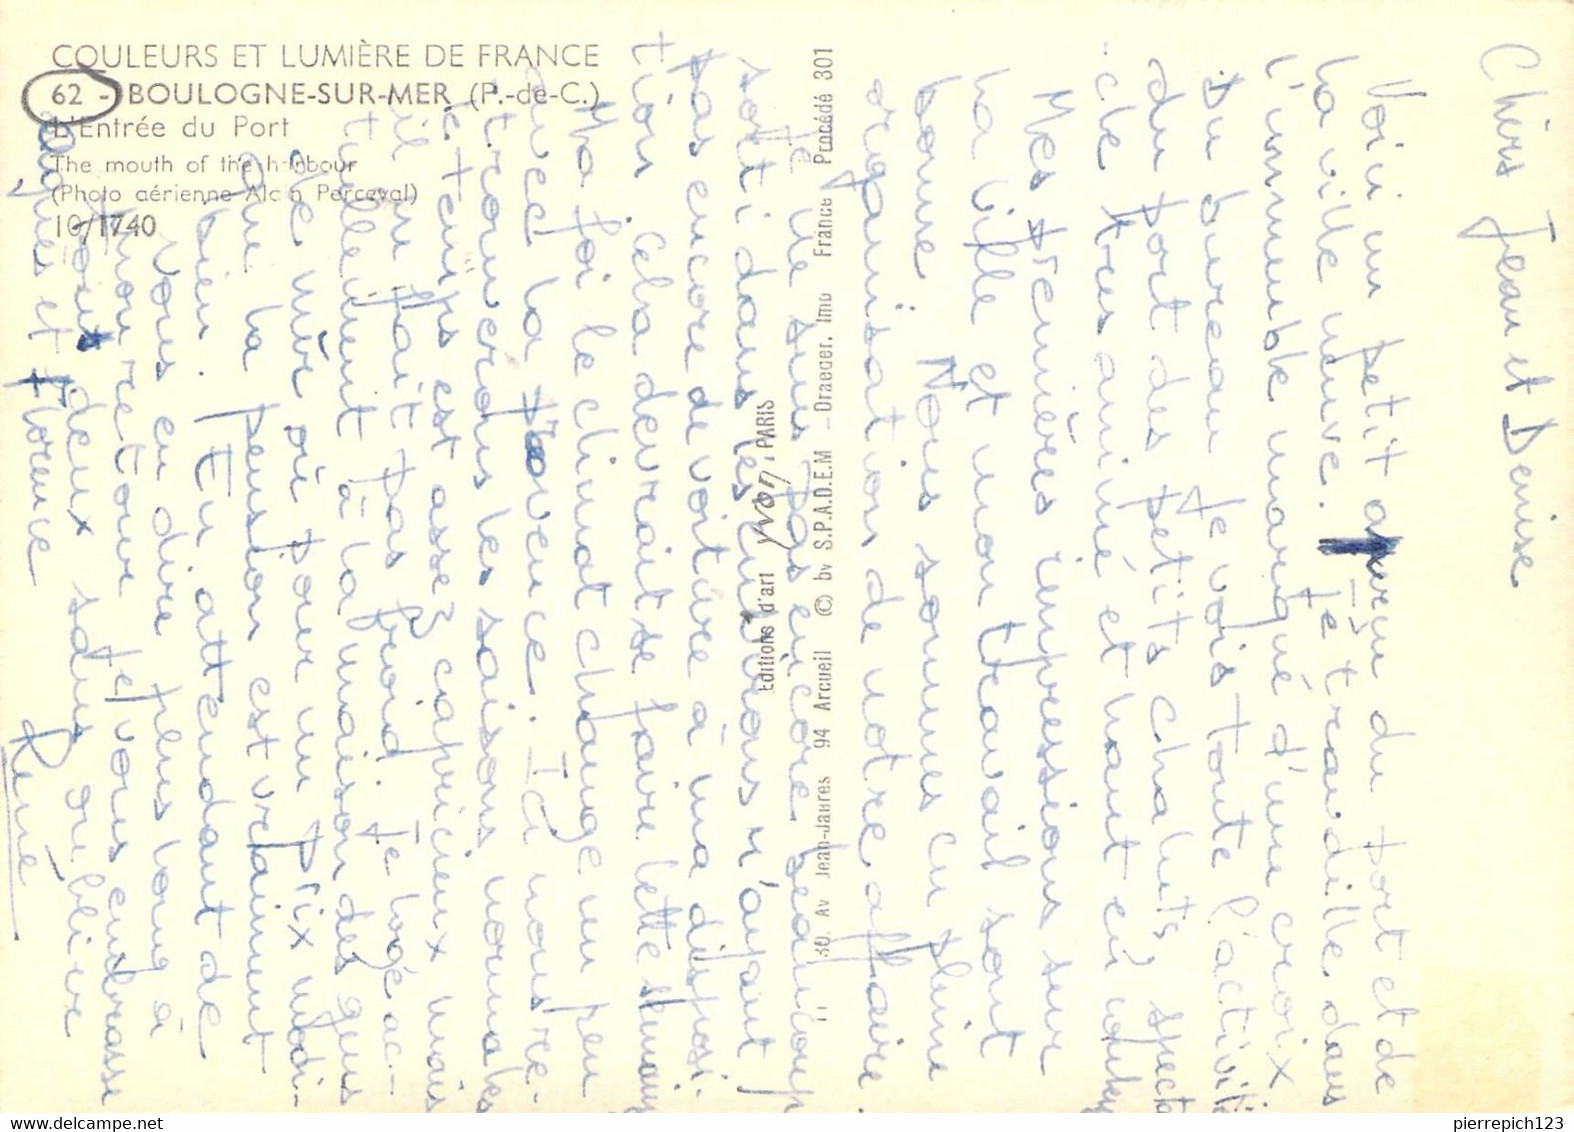 COULEURS ET LUMIÈRE DE FRANCE
62 - BOULOGNE-SUR-MER (P.-de-C.)
L'Entrée du Port
The mouth of the harbour
(Photo aérienne Alain Perceval)
10/1740
Editions d'art yvon, PARIS
30, Av Jean-Jaurès 94 Arcueil © by S.P.A.D.E.M - Draeger, Imp France Procédé 301
Chers Jean et Denise
Voici un petit aperçu du port et de
ma ville neuve. Je travaille dans
l'immeuble marqué d'une croix
Du bureau je vois toute l'activité
du port des petits chaluts, specta
-cle très animé et haut en couleurs
Mes premières impressions sur
la ville et mon travail sont
bonne Nous sommes en pleine
organisation de notre affaire
Je ne suis pas encore beaucoup
sorti dans les environs n'ayant
pas encore de voiture à ma disposi-
tion Cela devrait se faire cette semaine
Ma foi le climat change un peu
avec la Provence. Ici nous re-
trouverons les saisons normales
le temps est assez capricieux mais
il ne fait pas froid. Je logé ac-
tuellement à la maison des gens
de mer où pour un prix modi-
que la pension est vraiment
bien. En attendant de
vous en dire plus long à
mon retour je vous embrasse
tous deux sans oublier
et Florence
René
pierrepich123